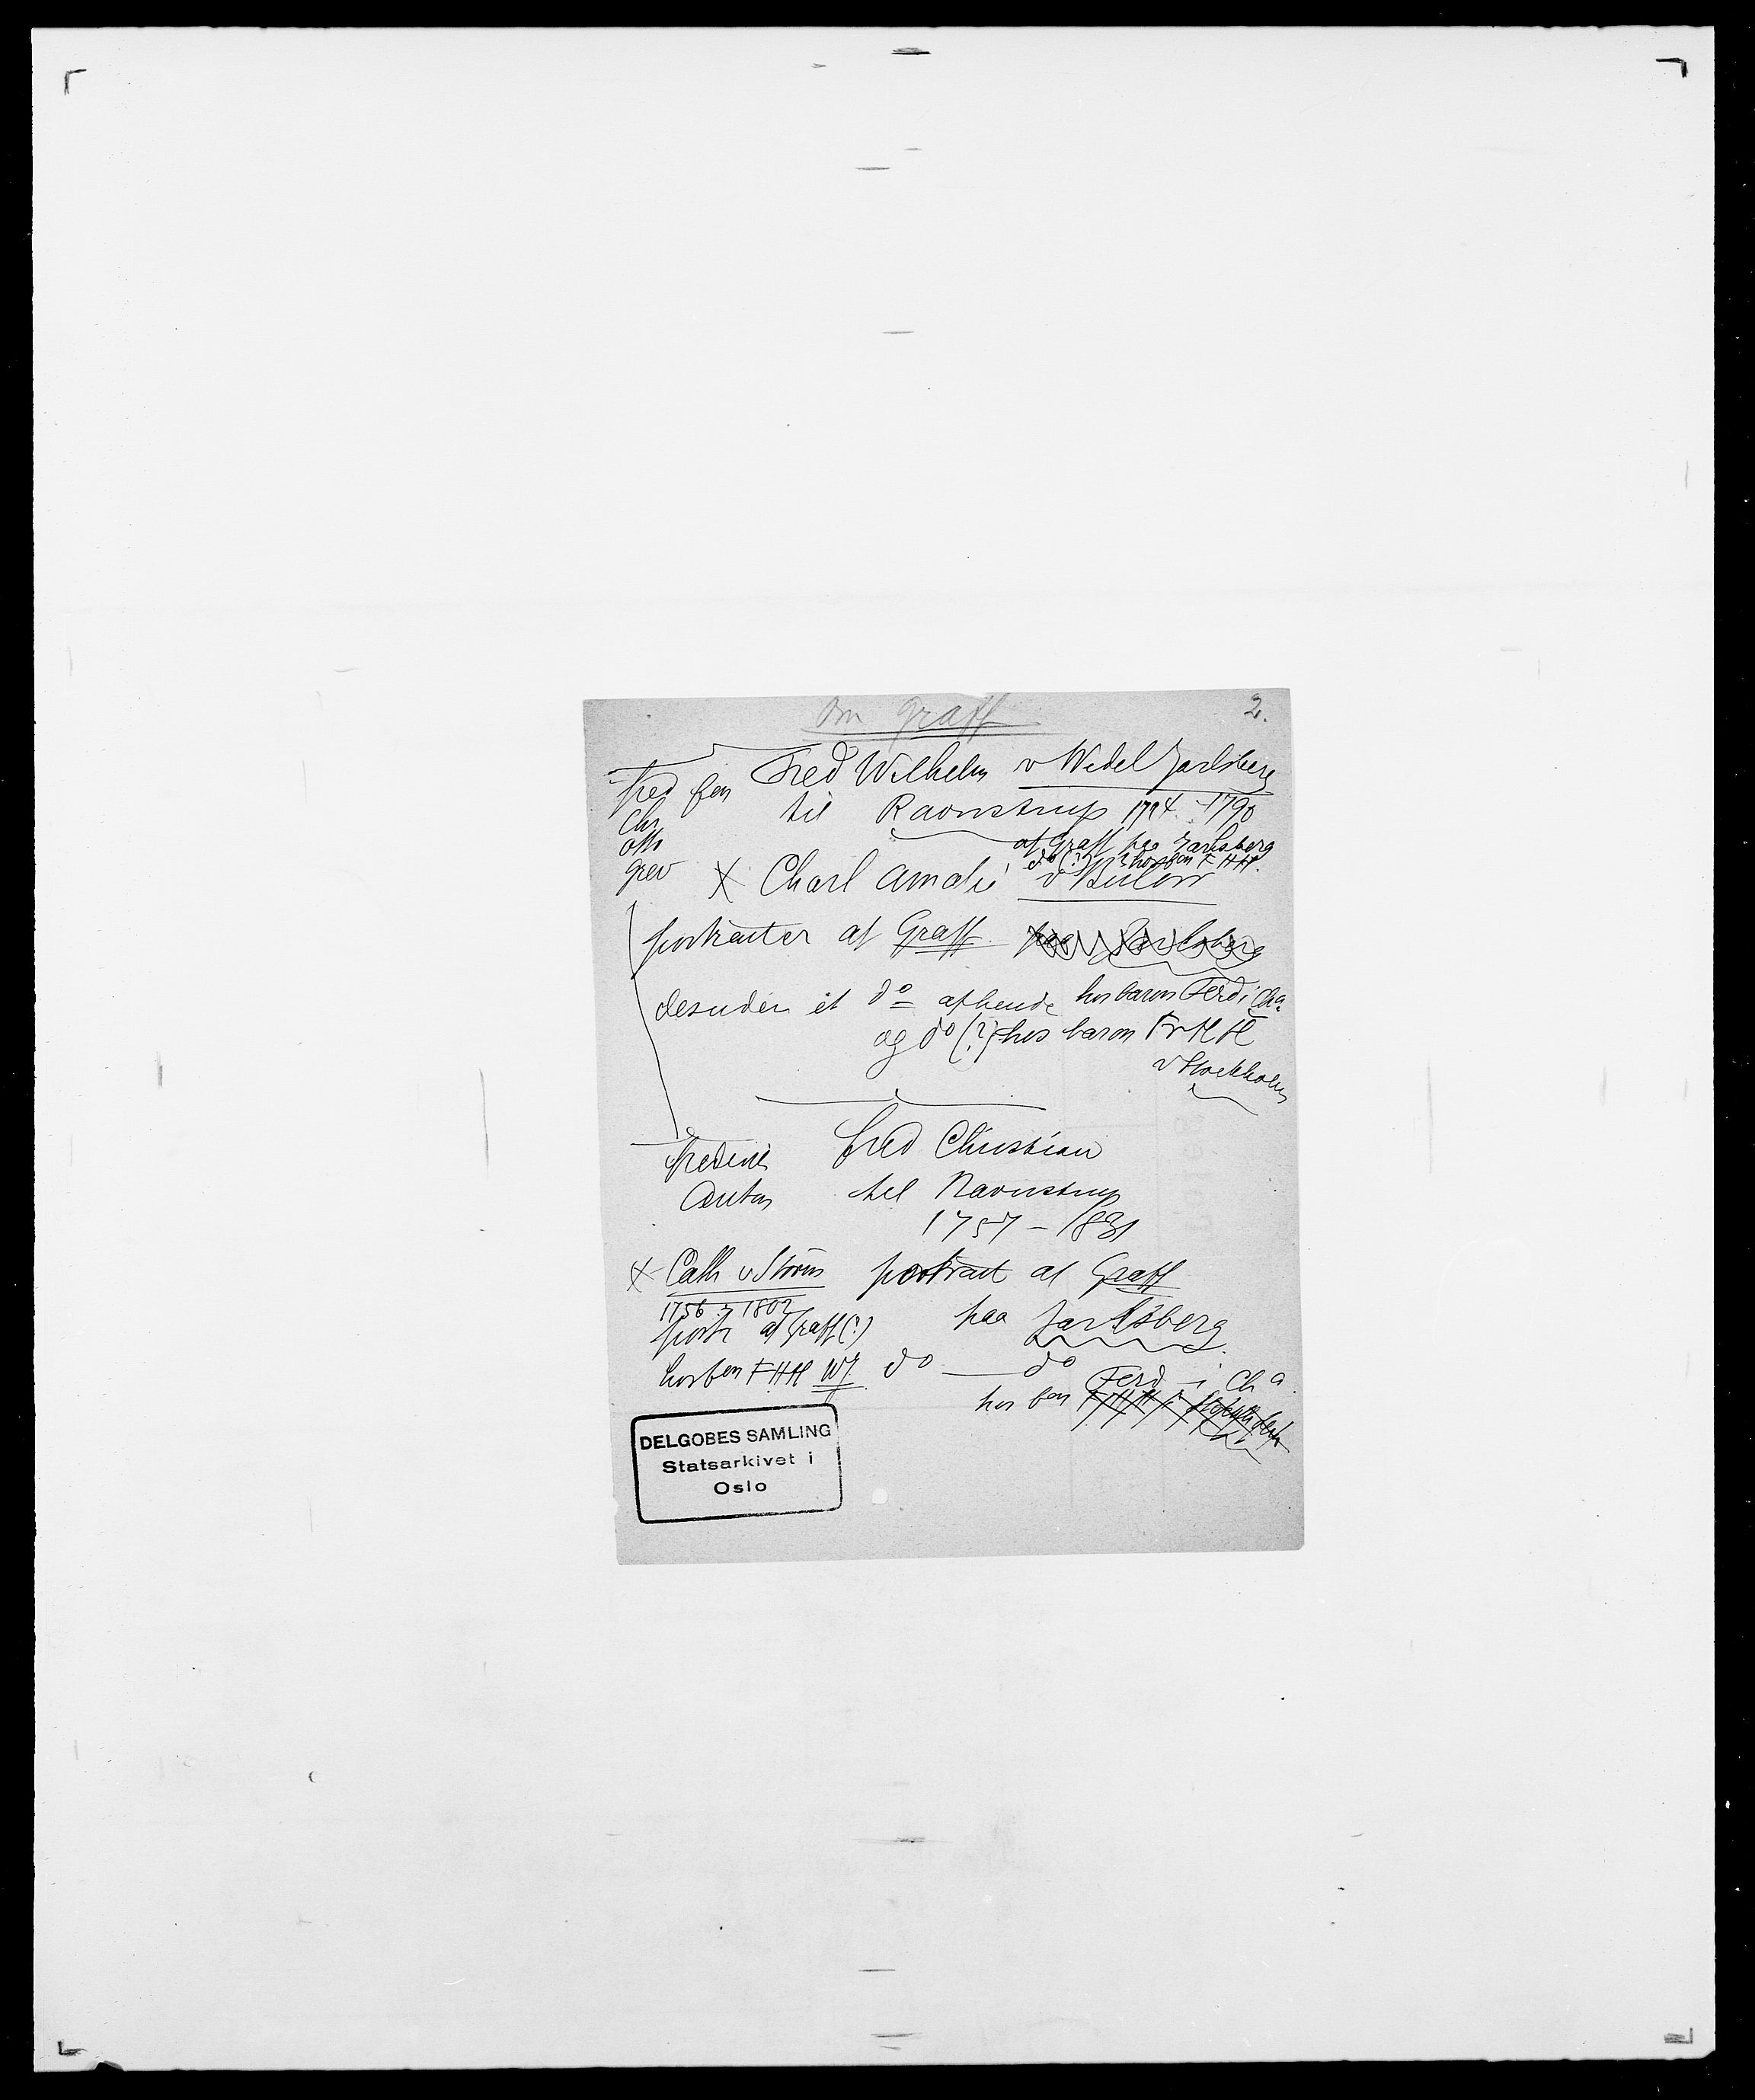 Om Graff 2.
Fred Wilhelm v Wedel Jarlsberg
Fred fen
til Ravnstrup 1724-1790
Chr
Otto
af Graff paa Jarlsberg
do (?) hos ben F HH.
grev
X Charl Amalie v Bülow
portraiter af Graff. paa Jarlsberg
desuden et do afhende hos baron Ferd i Cha.
og do (?) hos baron Fr H H
v Stockholm
Frederik Fred Christian
Anton til Ravnstrup
1757-1831
X Cath v Storm portrait af Graff
1756 1802
paa Jarlsberg
portr af Graff (?)
hos ben F HH WJ do do Ferd i Cha.
hos ben F HH i
DELGOBES SAMLING
Statsarkivet i
Oslo